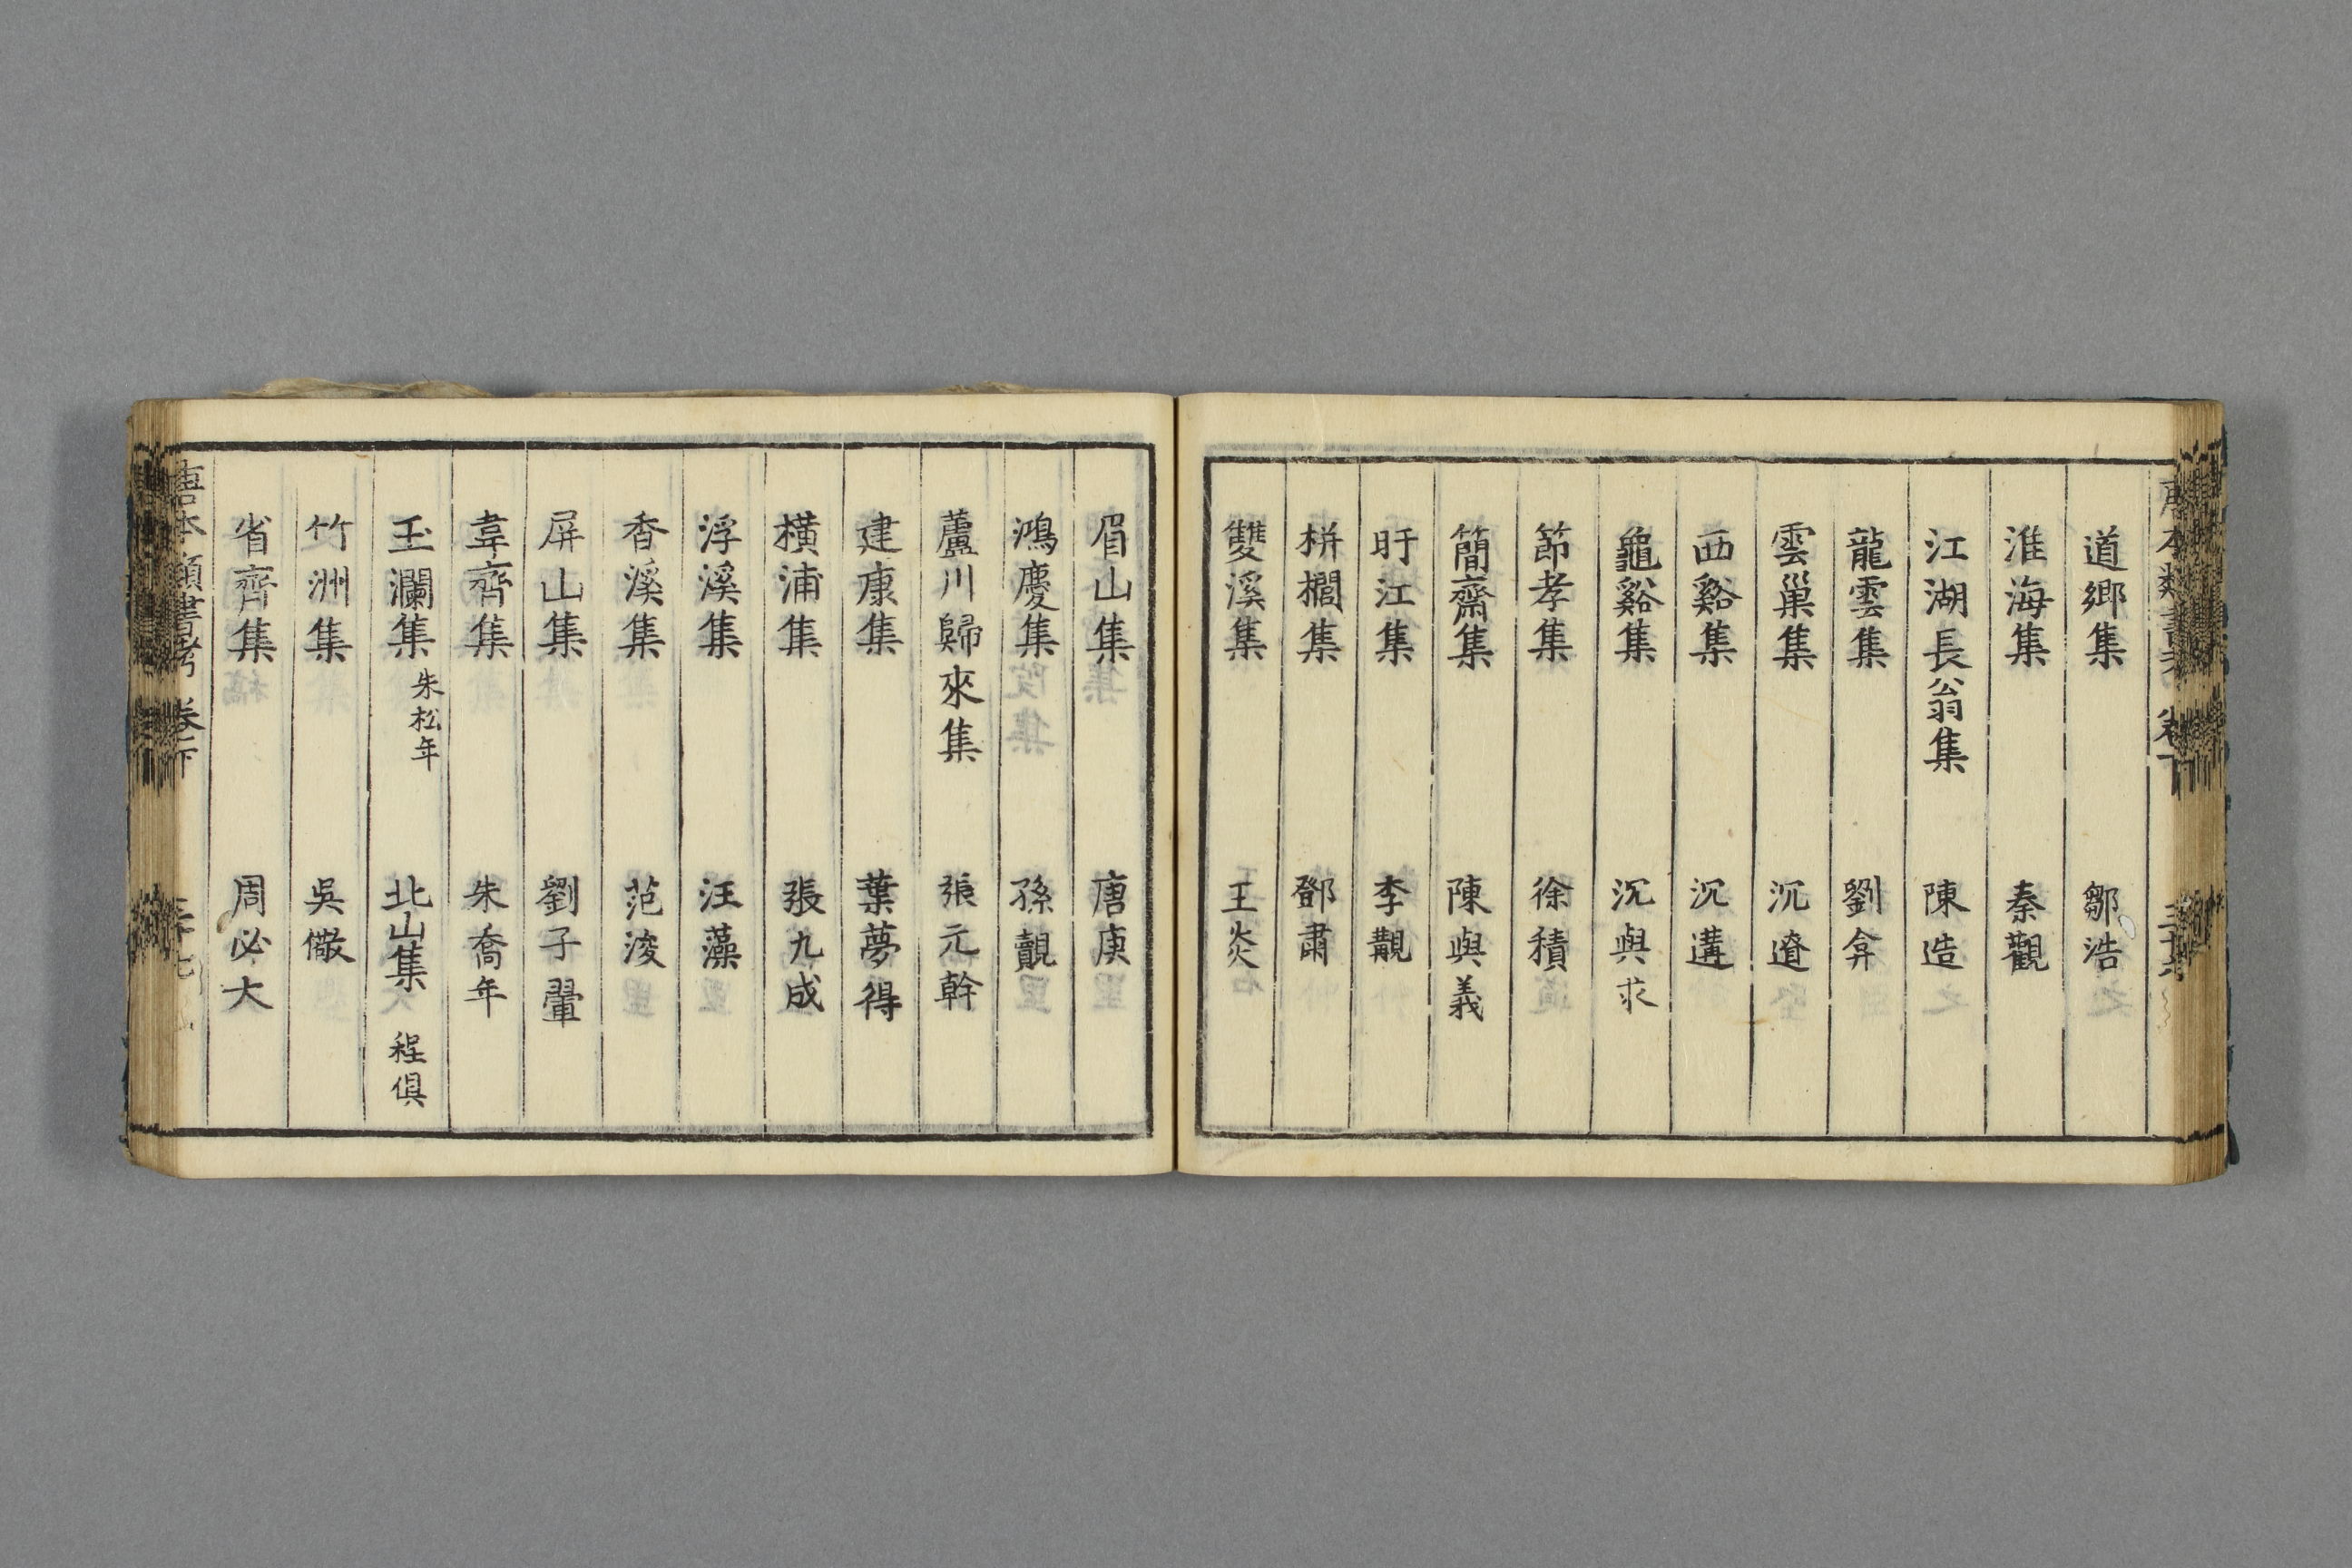 道鄉集　鄒浩
淮海集　秦觀
江湖長翁集　陳造
龍雲集　劉弇
雲巢集　沉遼
西谿集　沉遘
龜谿集　沉與求
節孝集　徐積
簡齋集　陳與義
盱江集　李覯
栟櫚集　鄧肅
雙溪集　王炎
眉山集　唐庚
鴻慶集　孫覿
蘆川歸來集　張元幹
建康集　葉夢得
橫浦集　張九成
浮溪集　汪藻
香溪集　范浚
屏山集　劉子翬
韋齊集　朱喬年
玉瀾集　朱松年　北山集　程俱
竹洲集　吳儆
省齊集　周必大
唐本類書考　卷下